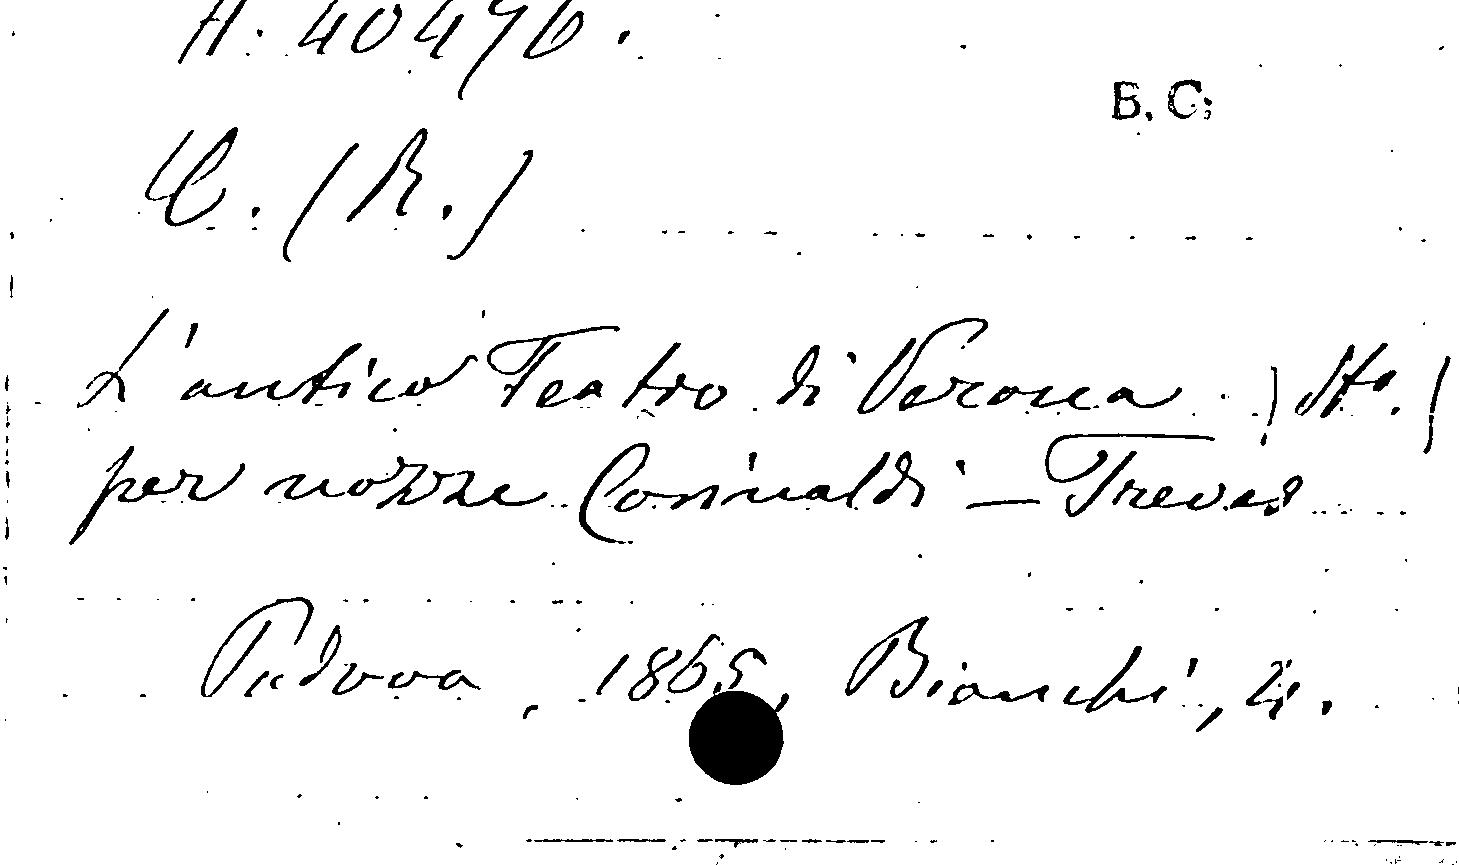 H. 40496.
B. C.
C. (R.)
L'antico Teatro di Verona (St°.)
per nozze Corinaldi – Treves
Padova, 1865, Bianchi, 4.